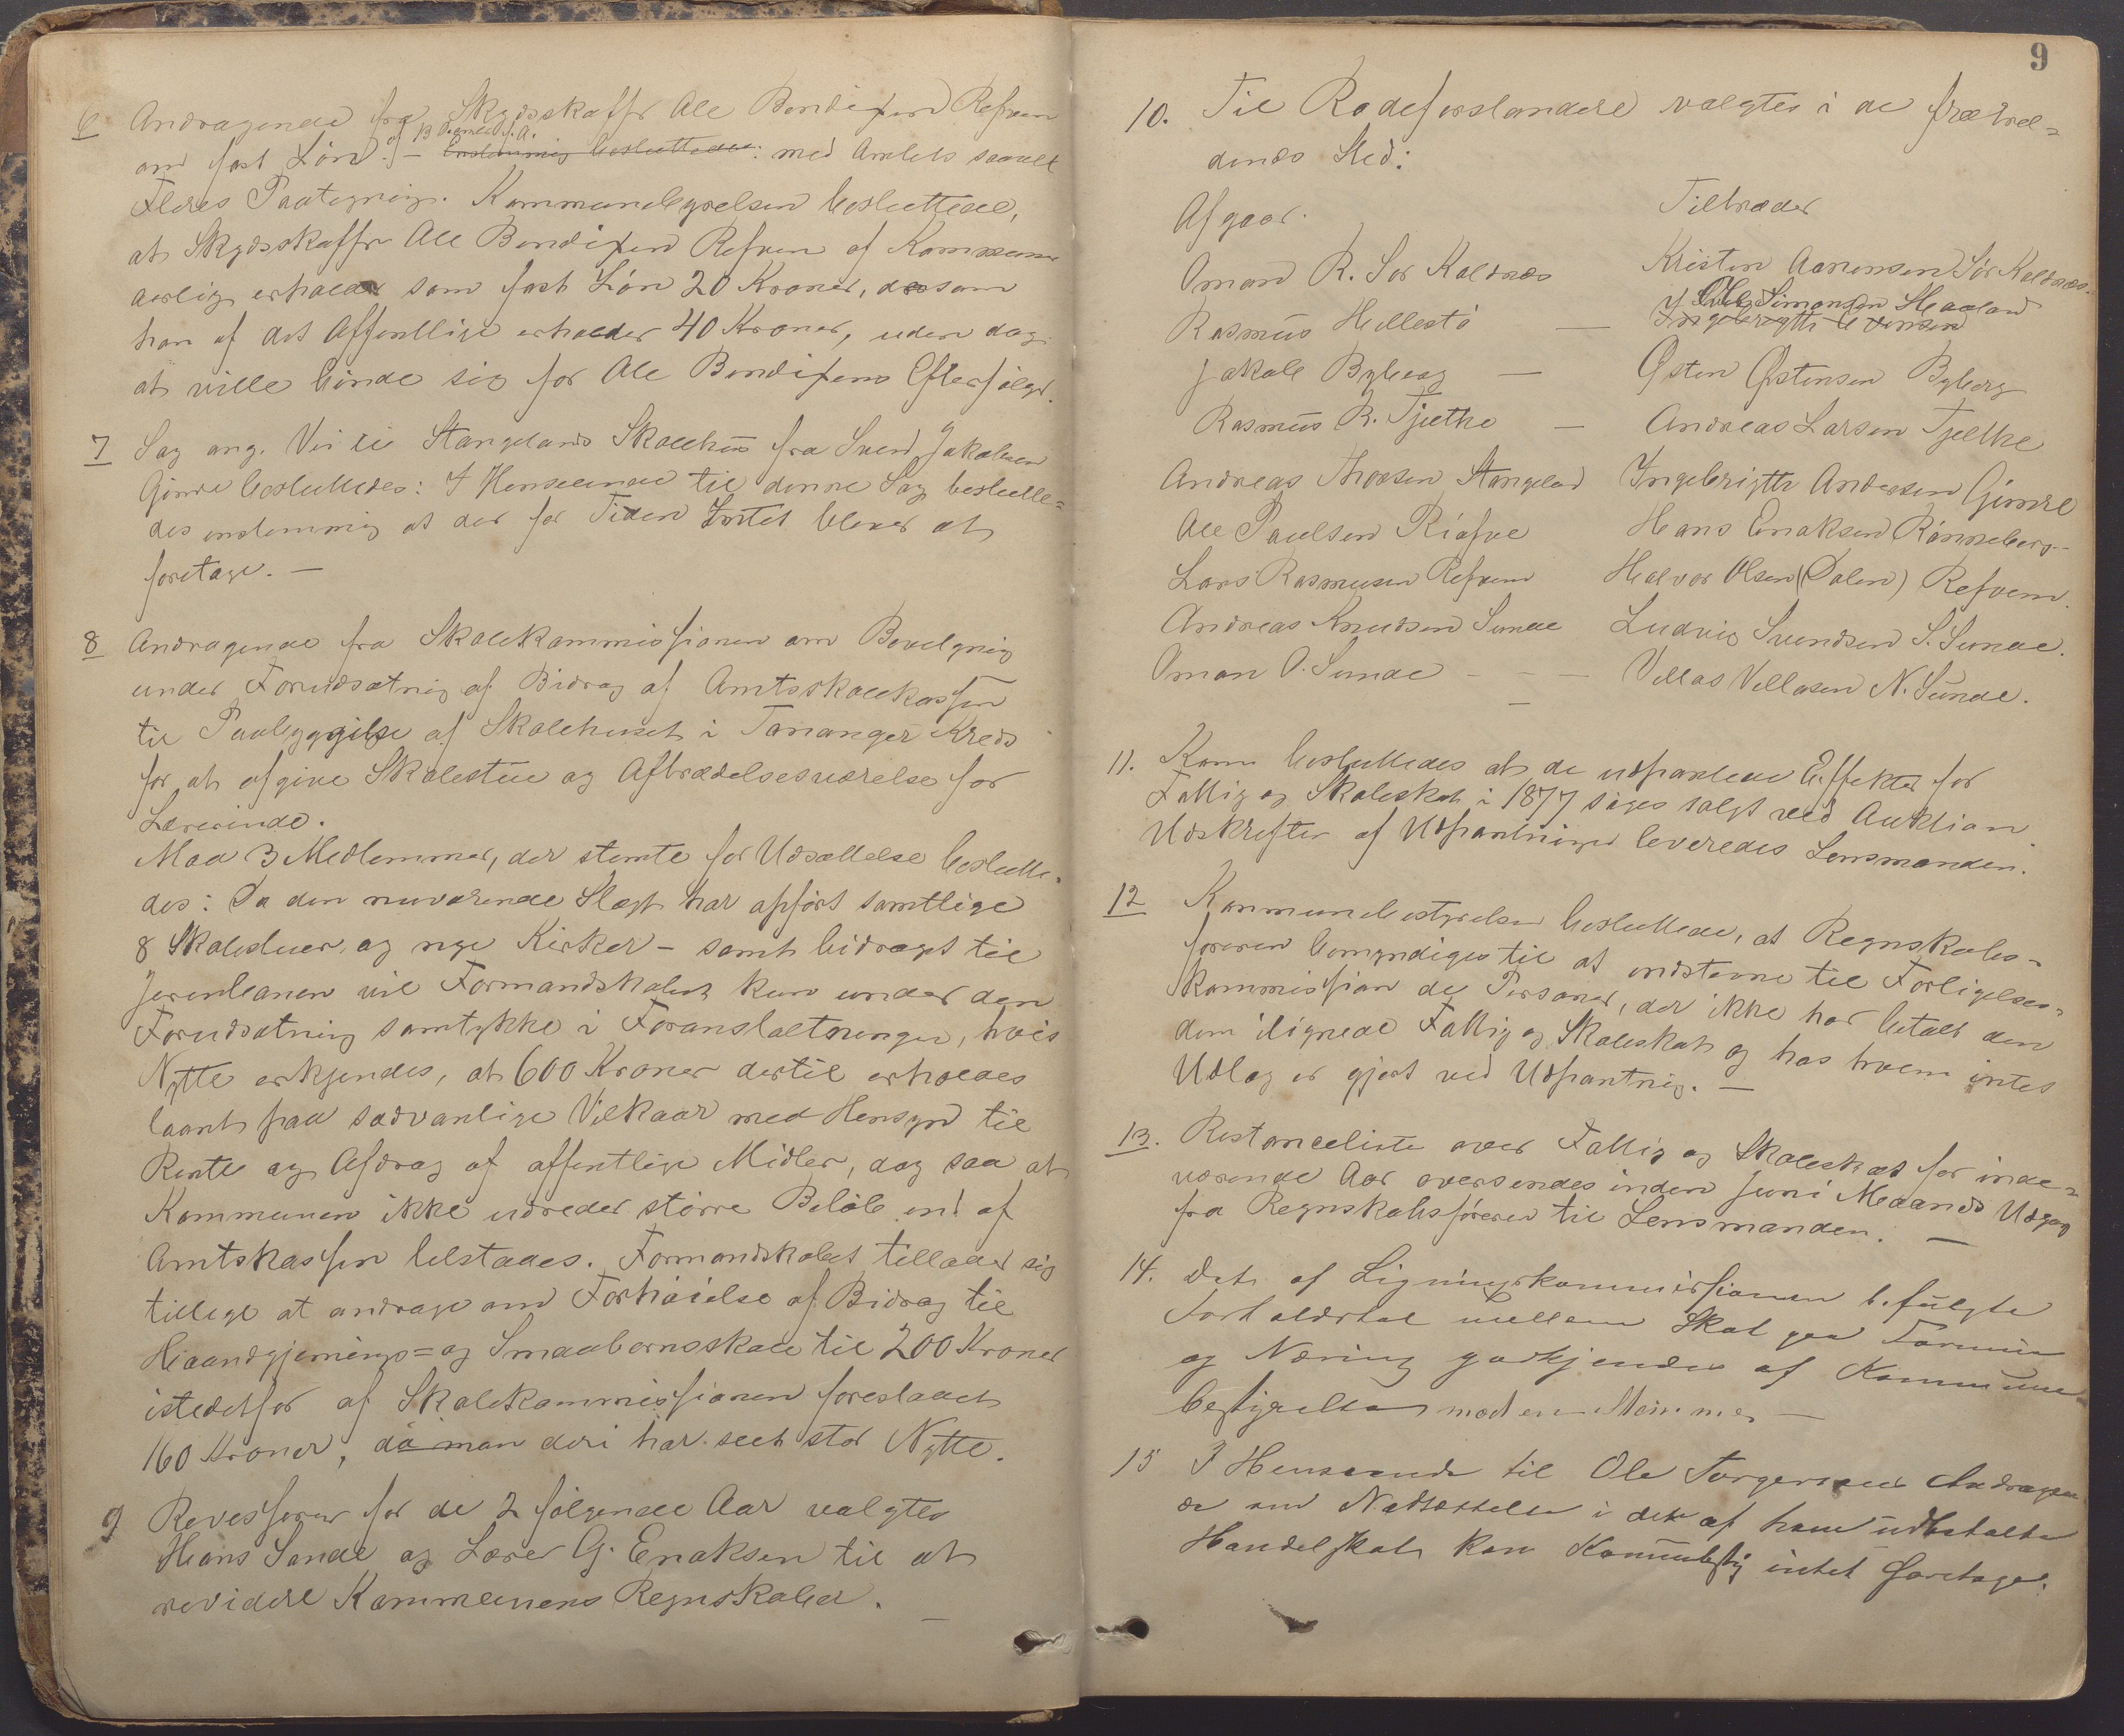 6 Andragende fra Skydsskaffr Ole Bendixen Refven
af 13 ds. s. A.
om fast Løn. — Enstemmig besluttedes: med Amtets samt
Fleres Paategning. Kommunebestyrelsen besluttede,
at Skydsskaffr Ole Bendixen Refven af Kommunen
aarlig erholder som fast Løn 20 Kroner, dersom
han af det Offentlige erholder 40 Kroner, uden dog
at ville binde sig for Ole Bendixens Efterfølger.
7 Sag ang. Vei til Stangelands Skolehus fra Svend Jakobsen
Gimre besluttedes: I Henseende til denne Sag beslutte=
des enstemmig at der for Tiden Intet bliver at
foretage. —
8 Andragende fra Skolekommissionen om Bevilgning
under Forudsætning af Bidrag af Amtsskolekassen
til Paabyggelse af Skolehuset i Tananger Kreds
for at afgive Skolestue og Aftrædelsesværelse for
Lærerinde.
Mod 3 Medlemmer, der stemte for Udsættelse beslutte=
des: Da den nuværende Slægt har opført samtlige
8 Skolestuer og nye Kirker – samt bidraget til
Jernbanen vil Formandskabet kun under den
Forudsætning samtykke i Foranstaltningen, hvis
Nytte erkjendes, at 600 Kroner dertil erholdes
laant paa sædvanlige Vilkaar med Hensyn til
Rente og Afdrag af offentlige Midler, dog saa at
Kommunen ikke udreder større Beløb end af
Amtskassen tilstaaes. Formandskabet tillader sig
tillige at andrage om Forhøielse af Bidrag til
Haandgjernings= og Smaabornsskole til 200 Kroner
istedetfor af Skolekommissionen foreslaaet
160 Kroner, da man deri har seet stor Nytte.
9 Revisorer for de 2 følgende Aar valgtes
Hans Sande og Lærer G. Enaksen til at
revidere Kommunens Regnskaber. —
9
10. Til Rodeforstandere valgtes i de fratræ=
dendes Sted:
Afgaar. Tiltræder
Oman R. Sør Koldnæs Kristen Aanensen Sør Koldnæs.
Ole Simonsen Haaland
Rasmus Hellestø — Ingebrigth Evensen
Jakob Byberg — Østen Østensen Byberg
Rasmus R. Tjelthe — Andreas Larsen Tjelthe
Andreas Thorsen Stangeland Ingebrigth Andersen Gimre
Ole Paulsen Risfoe Hans Enaksen Rønneberg
Lars Rasmusen Refvem Halvor Olsen (Dalen) Refvem.
Andreas Knudsen Sunde Ludvig Svendsen S. Sunde.
Oman O. Sunde – – — Villas Villasen N. Sunde.
11. Kom. besluttedes at de udpantede Effekter for
Fattig og Skoleskat i 1877 søges solgt ved Auktion
Udskrifter af Udpantninger leveredes Lensmanden.
12 Kommunebestyrelsen besluttede, at Regnskabs=
føreren bemyndiges til at indstevne til Forligelses=
kommission de Personer, der ikke har betalt den
dem ilignede Fattig og Skoleskat og hos hvem intet
Udlæg er gjort ved Udpantning. —
13. Restanceliste over Fattig og Skoleskat for inde=
værende Aar oversendes inden Juni Maaneds Udgang
fra Regnskabsføreren til Lensmanden. —
14. Det af Ligningskommissionen befulgte
Forholdstal mellem Skat paa Formue
og Næring godkjendes af Kommune
bestyrelsen mod en Stemme —
15 I Henseende til Ole Torgersens Andragen
de om Nedsættelse i det af ham udbetalte
Handelskat kan Kommunebesty intet foretages.